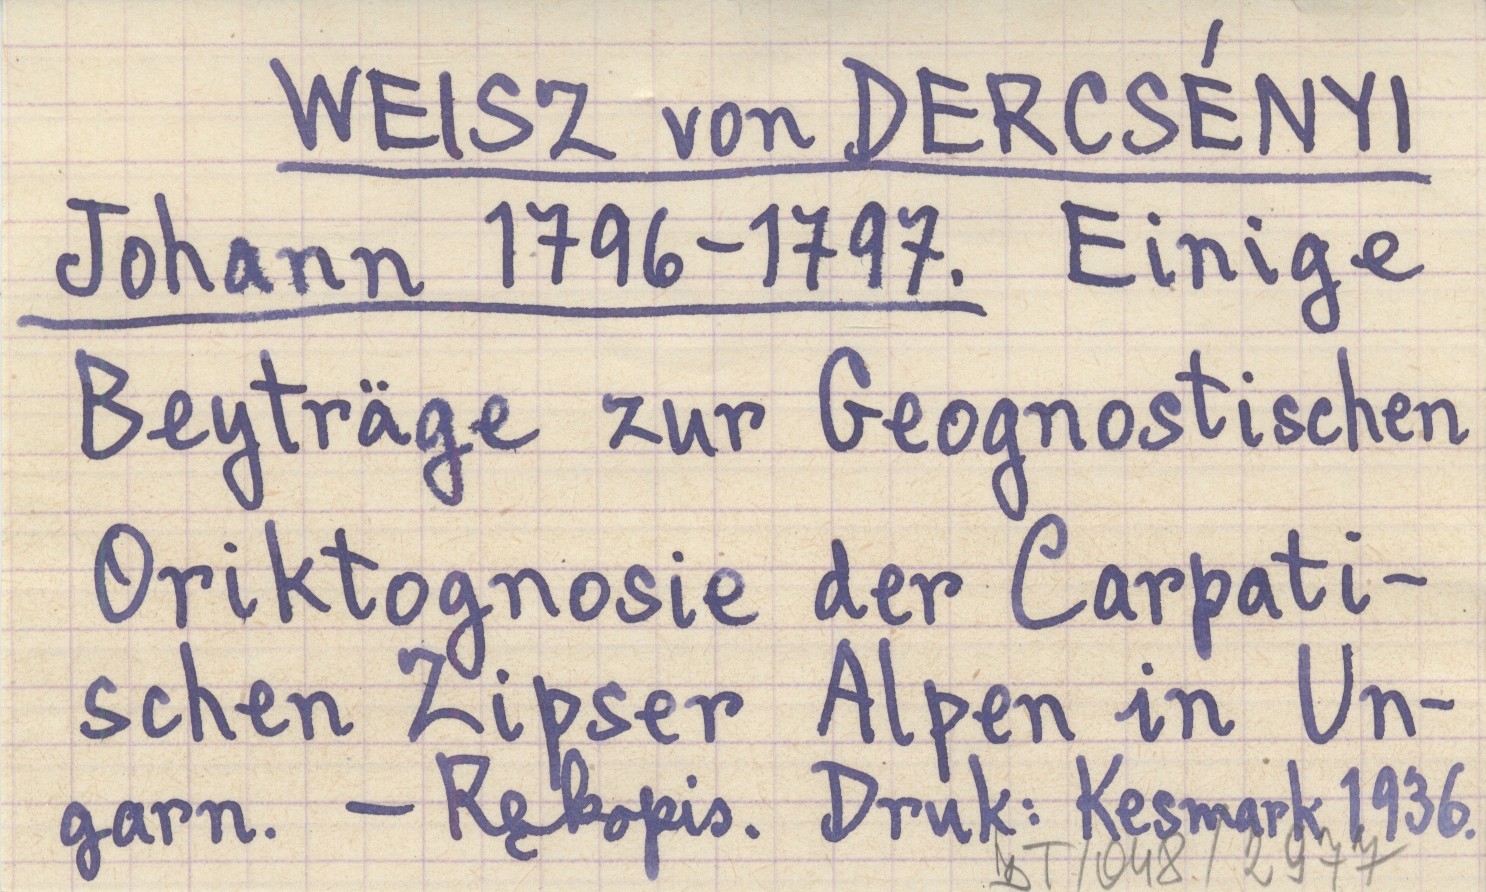 WEISZ von DERCSÉNYI
Johann 1796-1797. Einige
Beyträge zur Geognostischen
Oriktognosie der Carpati-
schen Zipser Alpen in Un-
garn. — Rękopis. Druk: Kesmark 1936.
DT/048/2977